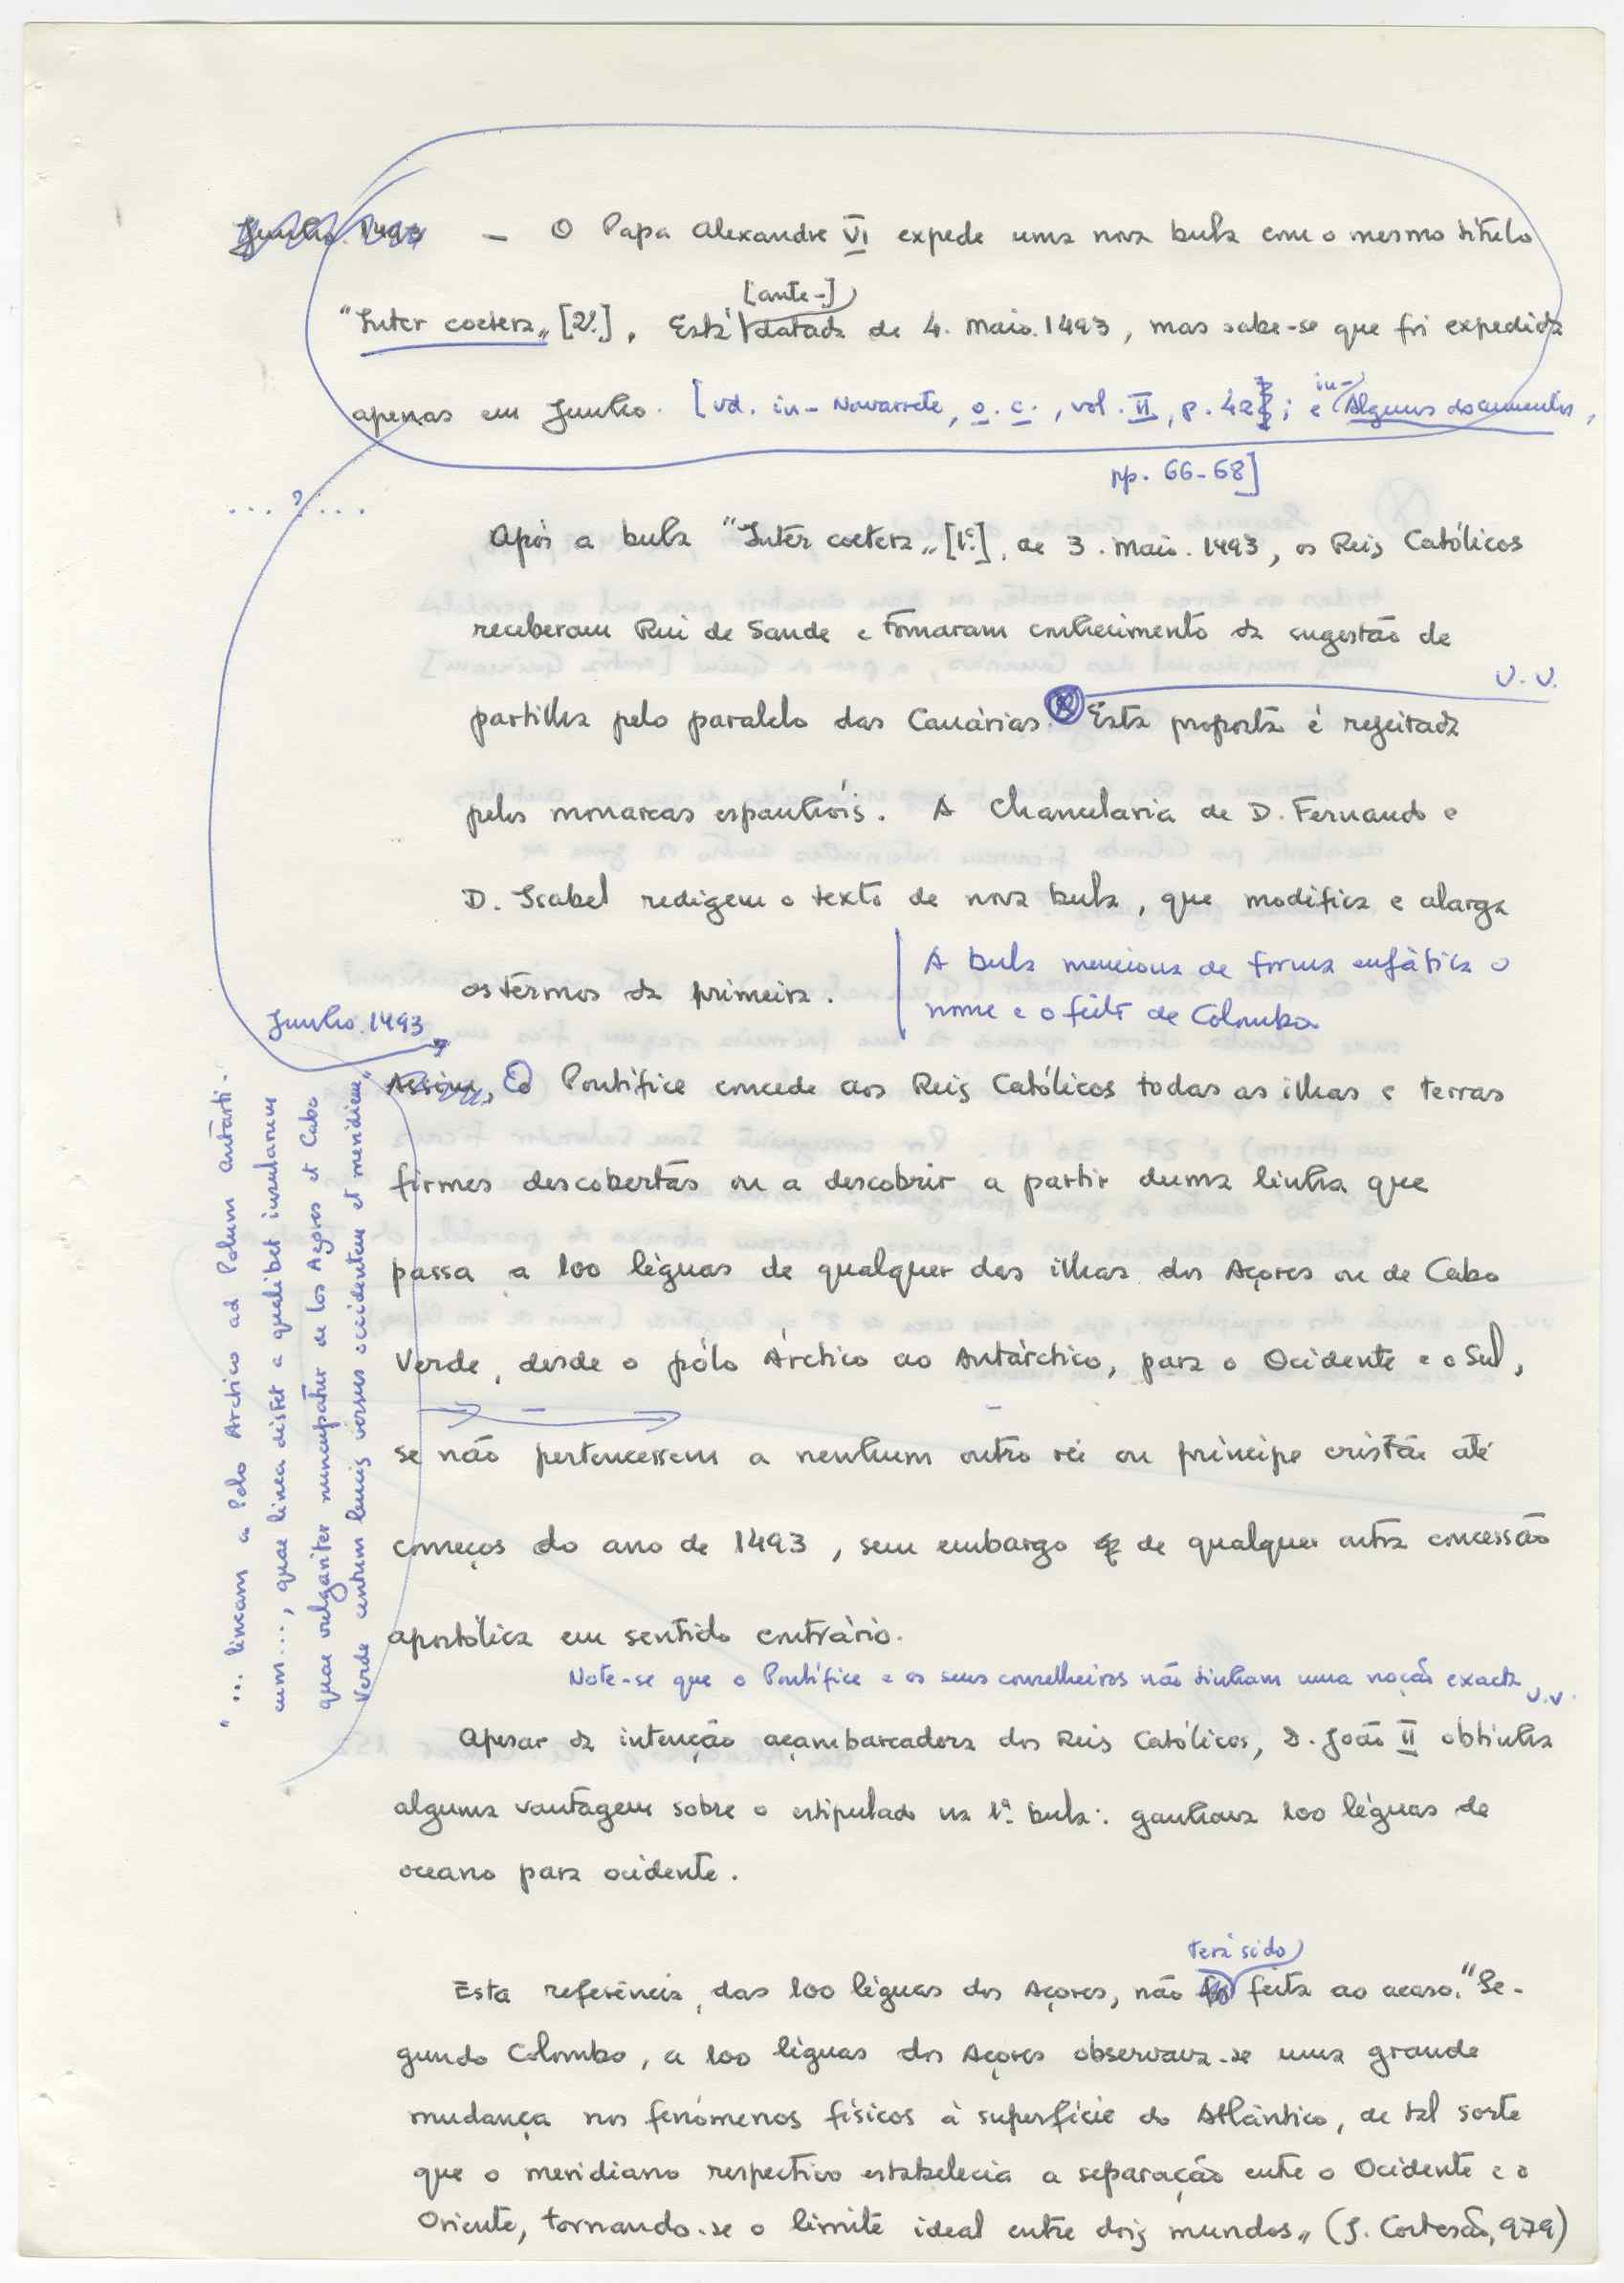 Junho. 1493 — O Papa Alexandre VI expede uma nova bula com o mesmo título
[ante-]
"Inter coetera„ [2ª.]. Está datada de 4. Maio. 1493, mas sabe-se que foi expedida
apenas em Junho. [vd. in- Navarrete, o. c., vol. II, p. 42; e in- Alguns documentos,
pp. 66-68]
...?...
Após a bula "Inter coetera„ [1ª.], de 3. Maio. 1493, os Reis Católicos
receberam Rui de Sande e tomaram conhecimento da sugestão de
V. V.
partilha pelo paralelo das Canárias. Esta proposta é rejeitada
pelos monarcas espanhóis. A Chancelaria de D. Fernando e
D. Isabel redigem o texto de nova bula, que modifica e alarga
os termos da primeira.
A bula menciona de forma enfática o
nome e o feito de Colombo
Junho. 1493
Assim, O Pontífice concede aos Reis Católicos todas as ilhas e terras
firmes descobertas ou a descobrir a partir duma linha que
passa a 100 léguas de qualquer das ilhas dos Açores ou de Cabo
Verde, desde o pólo Árctico ao Antárctico, para o Ocidente e o Sul,
se não pertencessem a nenhum outro rei ou príncipe cristão até
começos do ano de 1493, sem embargo de qualquer outra concessão
apostólica em sentido contrário.
"... lineam a Polo Arctico ad Polum antarti-
cum..., quae linea distet a qualibet insularum
quae vulgariter nuncupatur de los Açores et Cabo
Verde centum leucis versus occidentem et meridiem„
Note-se que o Pontífice e os seus conselheiros não tinham uma noção exacta V.V.
Apesar da intenção açambarcadora dos Reis Católicos, D. João II obtinha
alguma vantagem sobre o estipulado na 1ª. bula: ganhava 100 léguas de
oceano para ocidente.
terá sido
Esta referência, das 100 léguas dos Açores, não feita ao acaso. "Se-
gundo Colombo, a 100 léguas dos Açores observava-se uma grande
mudança nos fenómenos físicos à superfície do Atlântico, de tal sorte
que o meridiano respectivo estabelecia a separação entre o Ocidente e o
Oriente, tornando-se o limite ideal entre dois mundos„ (J. Cortesão, 979)